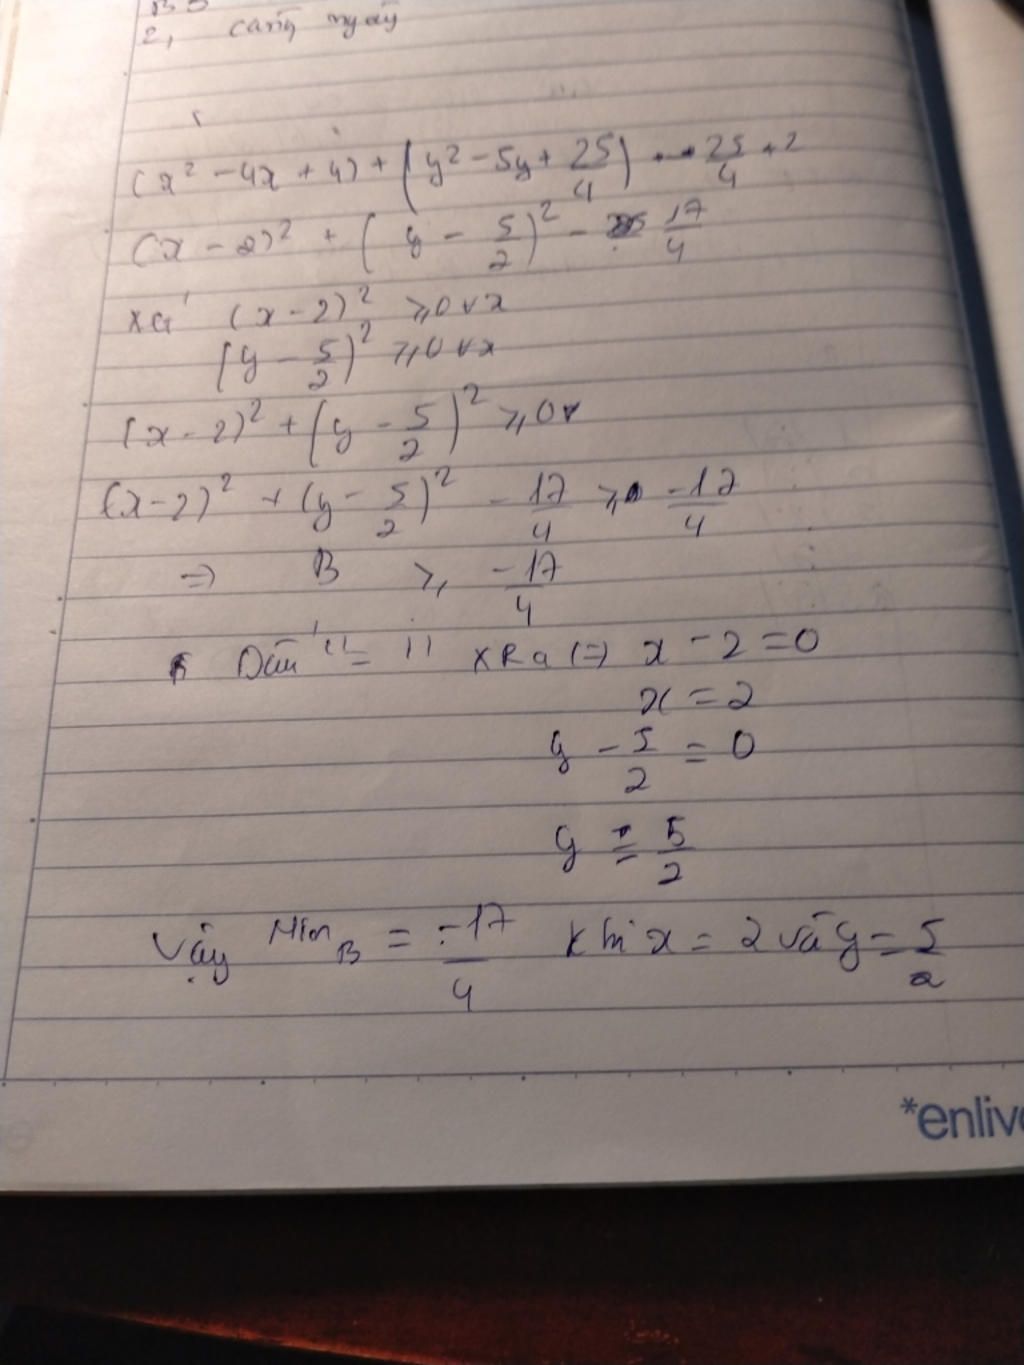 2,
(x² - 4x + 4) + (y² - 5y + 25/4) - 25/4 + 2
(x - 2)² + (y - 5/2)² - 17/4
(x - 2)² ≥ 0 ∀x
(y - 5/2)² ≥ 0 ∀x
(x - 2)² + (y - 5/2)² ≥ 0 ∀
(x - 2)² + (y - 5/2)² - 17/4 ≥ -17/4
=> B ≥ -17/4
Dấu "=" xRa (=> x - 2 = 0
x = 2
y - 5/2 = 0
y = 5/2
Vậy Min B = -17/4 khi x = 2 và y = 5/2
*enliv